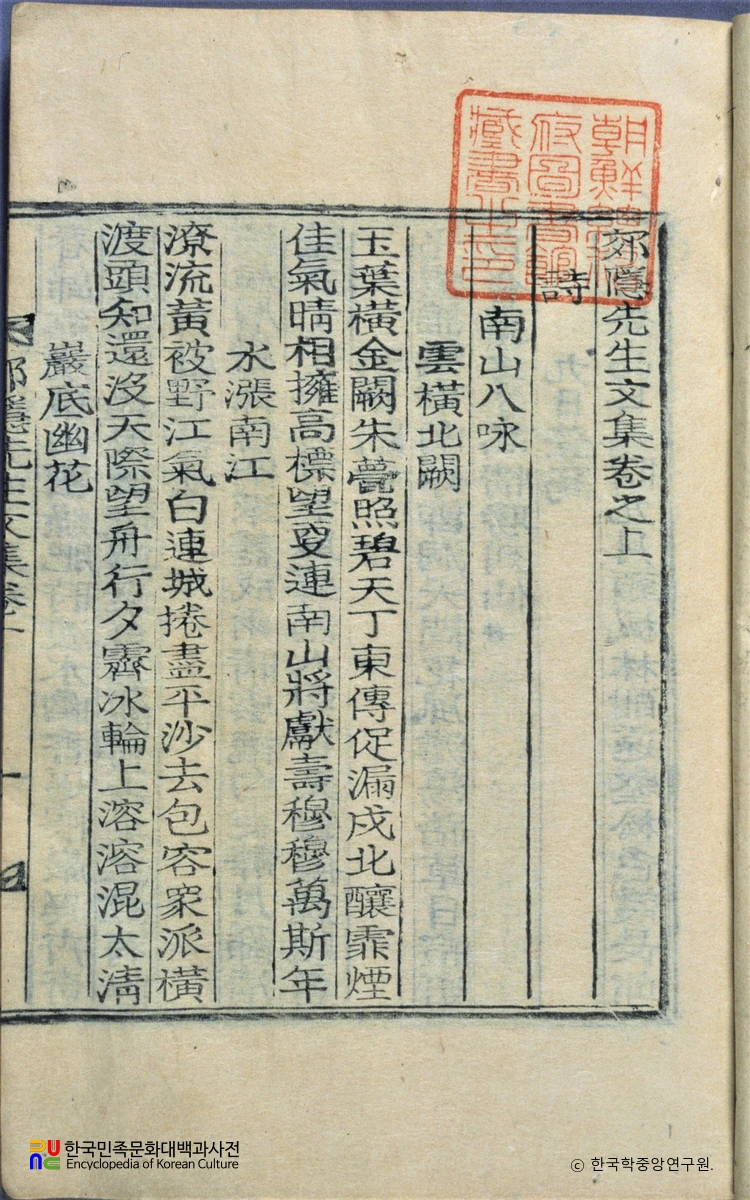 朝鮮總督
府圖書館
藏書之印
郊隱先生文集卷之上
詩
南山八咏
雲橫北闕
玉葉橫金闕朱甍照碧天丁東傳促漏戍北釀霏煙
佳氣晴相擁高標望更連南山將獻壽穆穆萬斯年
水漲南江
潦流黃被野江氣白連城捲盡平沙去包容衆派橫
渡頭知還沒天際望舟行夕霽冰輪上溶溶混太淸
巖底幽花
郊隱先生文集卷上
一
한국민족문화대백과사전
Encyclopedia of Korean Culture
ⓒ 한국학중앙연구원.